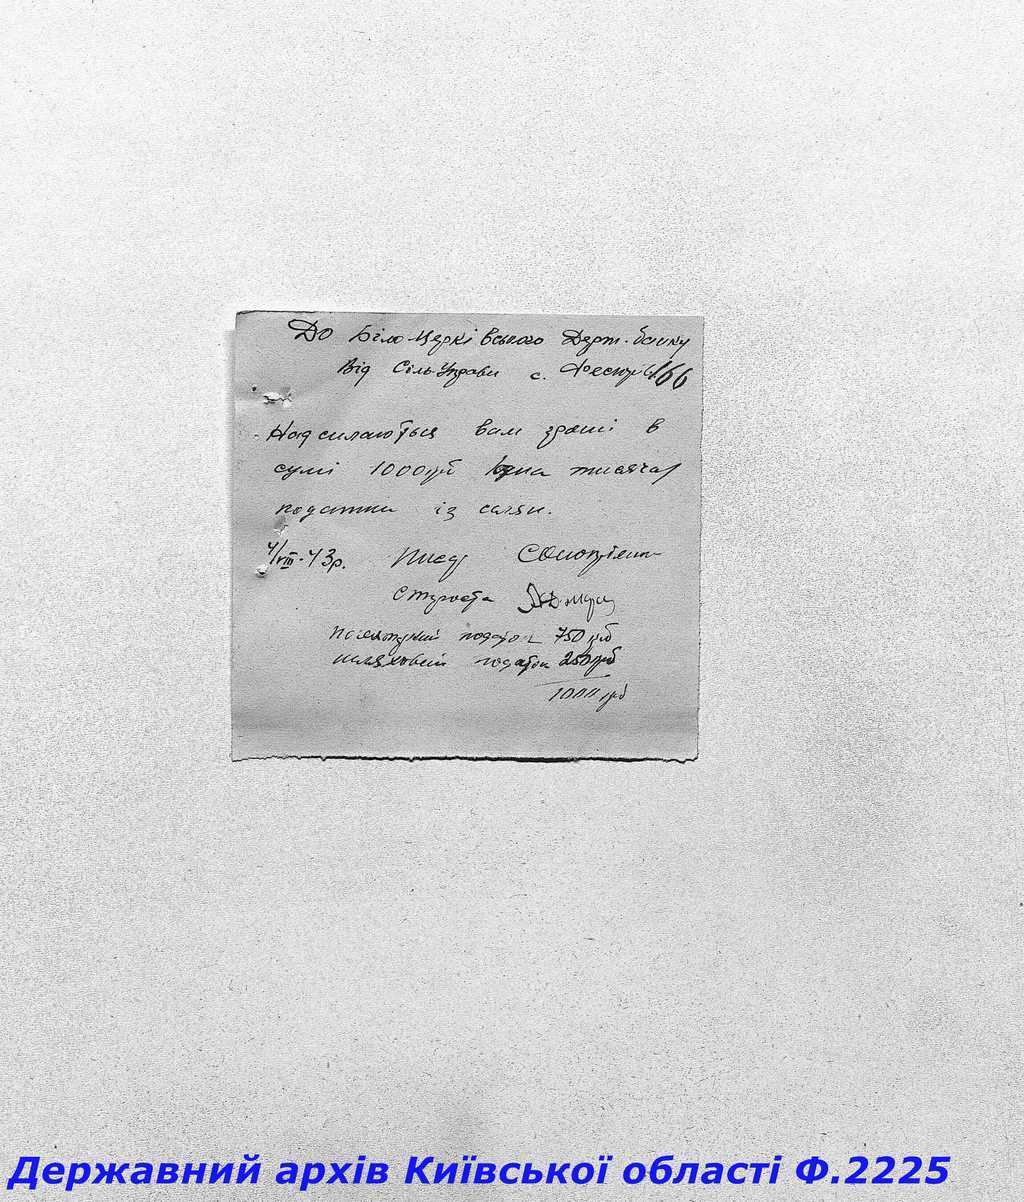 До Біло-Церківського Держ. банку
Від Сіль Управи с.
166
Надсилаються вам гроші в
сумі 1000 руб одна тисяча
податки із салян.
4/VIII-43р. Писар
Староста
податок 750 руб
шляховий податок 250 руб
1000 руб
Державний архів Київської області Ф.2225